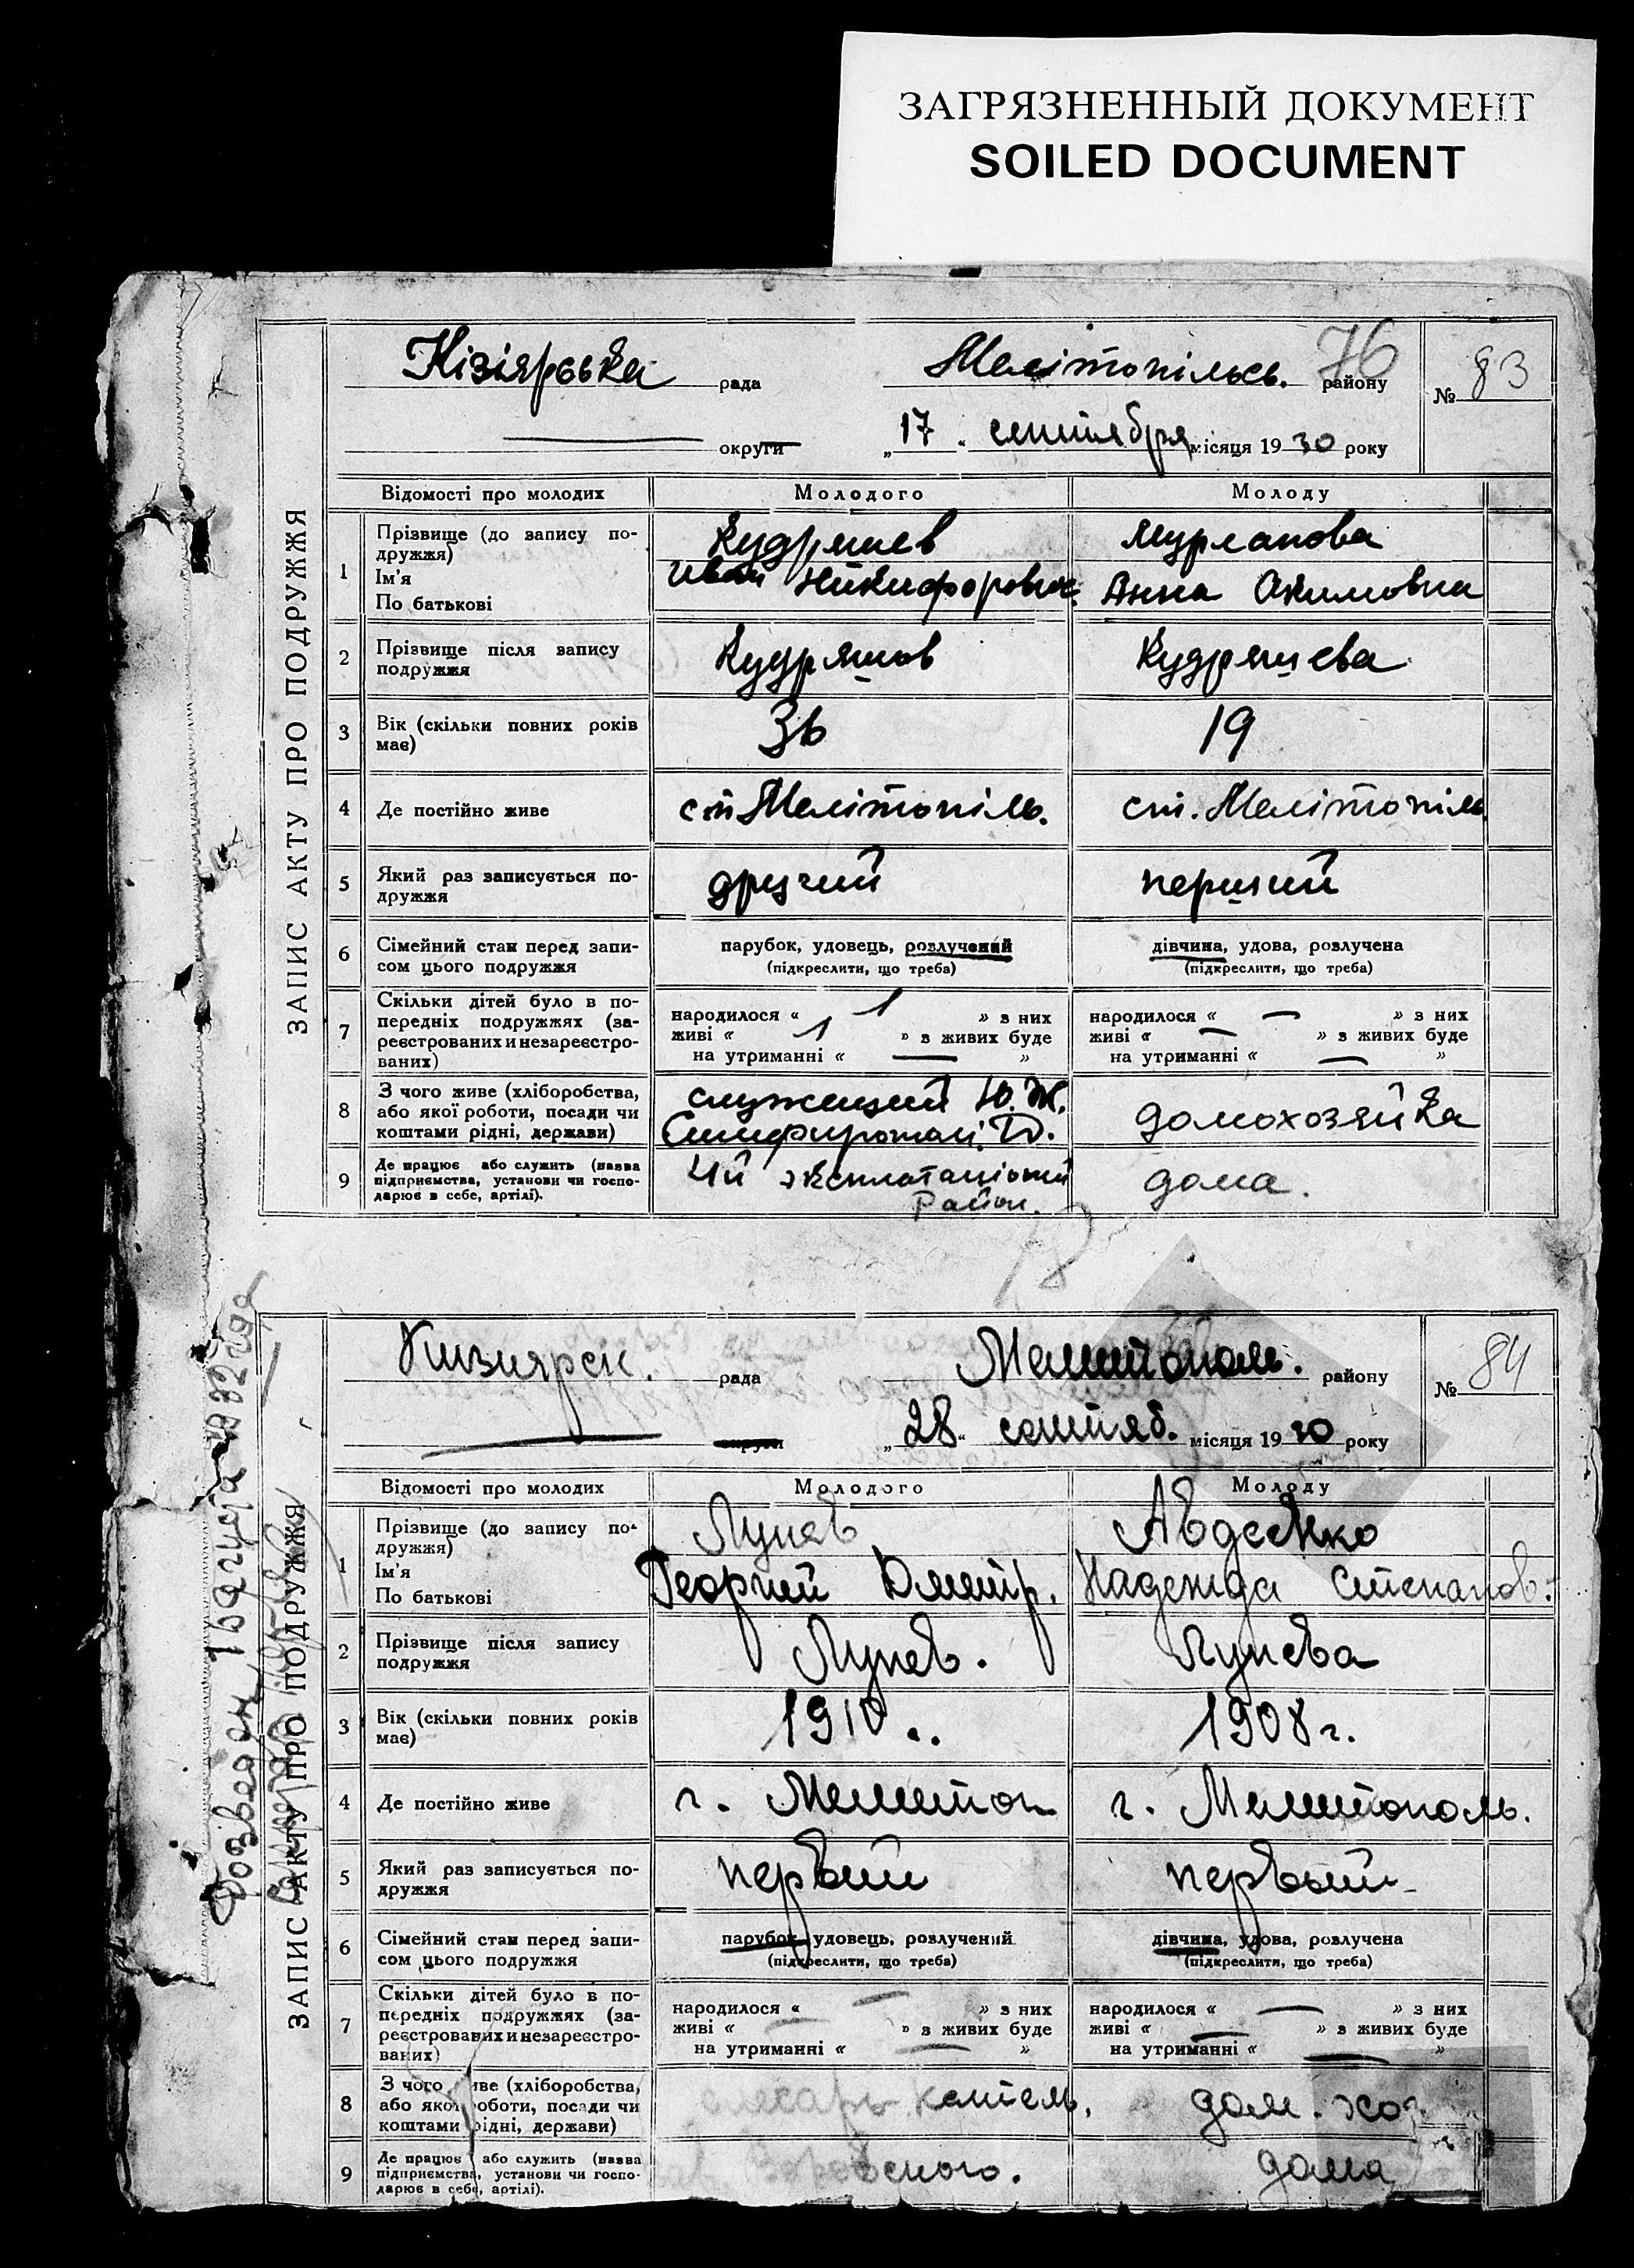 ЗАГРЯЗНЕННЫЙ ДОКУМЕНТ
SOILED DOCUMENT
ЗАПИС АКТУ ПРО ПОДРУЖЖЯ
Кізіярська рада Мелітопільсь. району 76 № 83
округи „17" сентября місяця 1930 року
Відомості про молодих Молодого Молоду
1 Прізвище (до запису подружжя) Кудряшев Мурланова
Ім'я По батькові Иван Никифорович Анна Акимовна
2 Прізвище після запису подружжя Кудряшов Кудряшева
3 Вік (скільки повних років має) 36 19
4 Де постійно живе ст Мелітопіль. ст. Мелітопіль
5 Який раз записується подружжя другий перший
6 Сімейний стан перед записом цього подружжя парубок, удовець, розлучений дівчина, удова, розлучена
(підкреслити, що треба) (підкреслити, що треба)
7 Скільки дітей було в попередніх подружжях (зареєстрованих и незареєстрованих) народилося « 1 » з них народилося « — » з них
живі « 1 » з живих буде живі « — » з живих буде
на утриманні « — » на утриманні « — »
8 З чого живе (хліборобства, або якої роботи, посади чи коштами рідні, держави) служащий Ю. Ж. домохозяйка
9 Де працює або служить (назва підприємства, установи чи господарює в себе, артілі). 4й эксплотаційний Район. дома.
ЗАПИС АКТУ ПРО ПОДРУЖЖЯ
Кизиярск. рада Мелитополь. району № 84
округи „28" сентяб. місяця 1930 року
Відомості про молодих Молодого Молоду
1 Прізвище (до запису подружжя) Лунев Авдеенко
Ім'я По батькові Георгий Дмитр. Надежда Степанов.
2 Прізвище після запису подружжя Лунев. Лунева
3 Вік (скільки повних років має) 1910 .. 1908 г.
4 Де постійно живе г. Мелитоп г. Мелитополь.
5 Який раз записується подружжя первый первый
6 Сімейний стан перед записом цього подружжя парубок, удовець, розлучений дівчина, удова, розлучена
(підкреслити, що треба) (підкреслити, що треба)
7 Скільки дітей було в попередніх подружжях (зареєстрованих и незареєстрованих) народилося « — » з них народилося « — » з них
живі « — » з живих буде живі « — » з живих буде
на утриманні « — » на утриманні « — »
8 З чого живе (хліборобства, або якої роботи, посади чи коштами рідні, держави) слесарь дом. хоз
9 Де працює або служить (назва підприємства, установи чи господарює в себе, артілі). дома